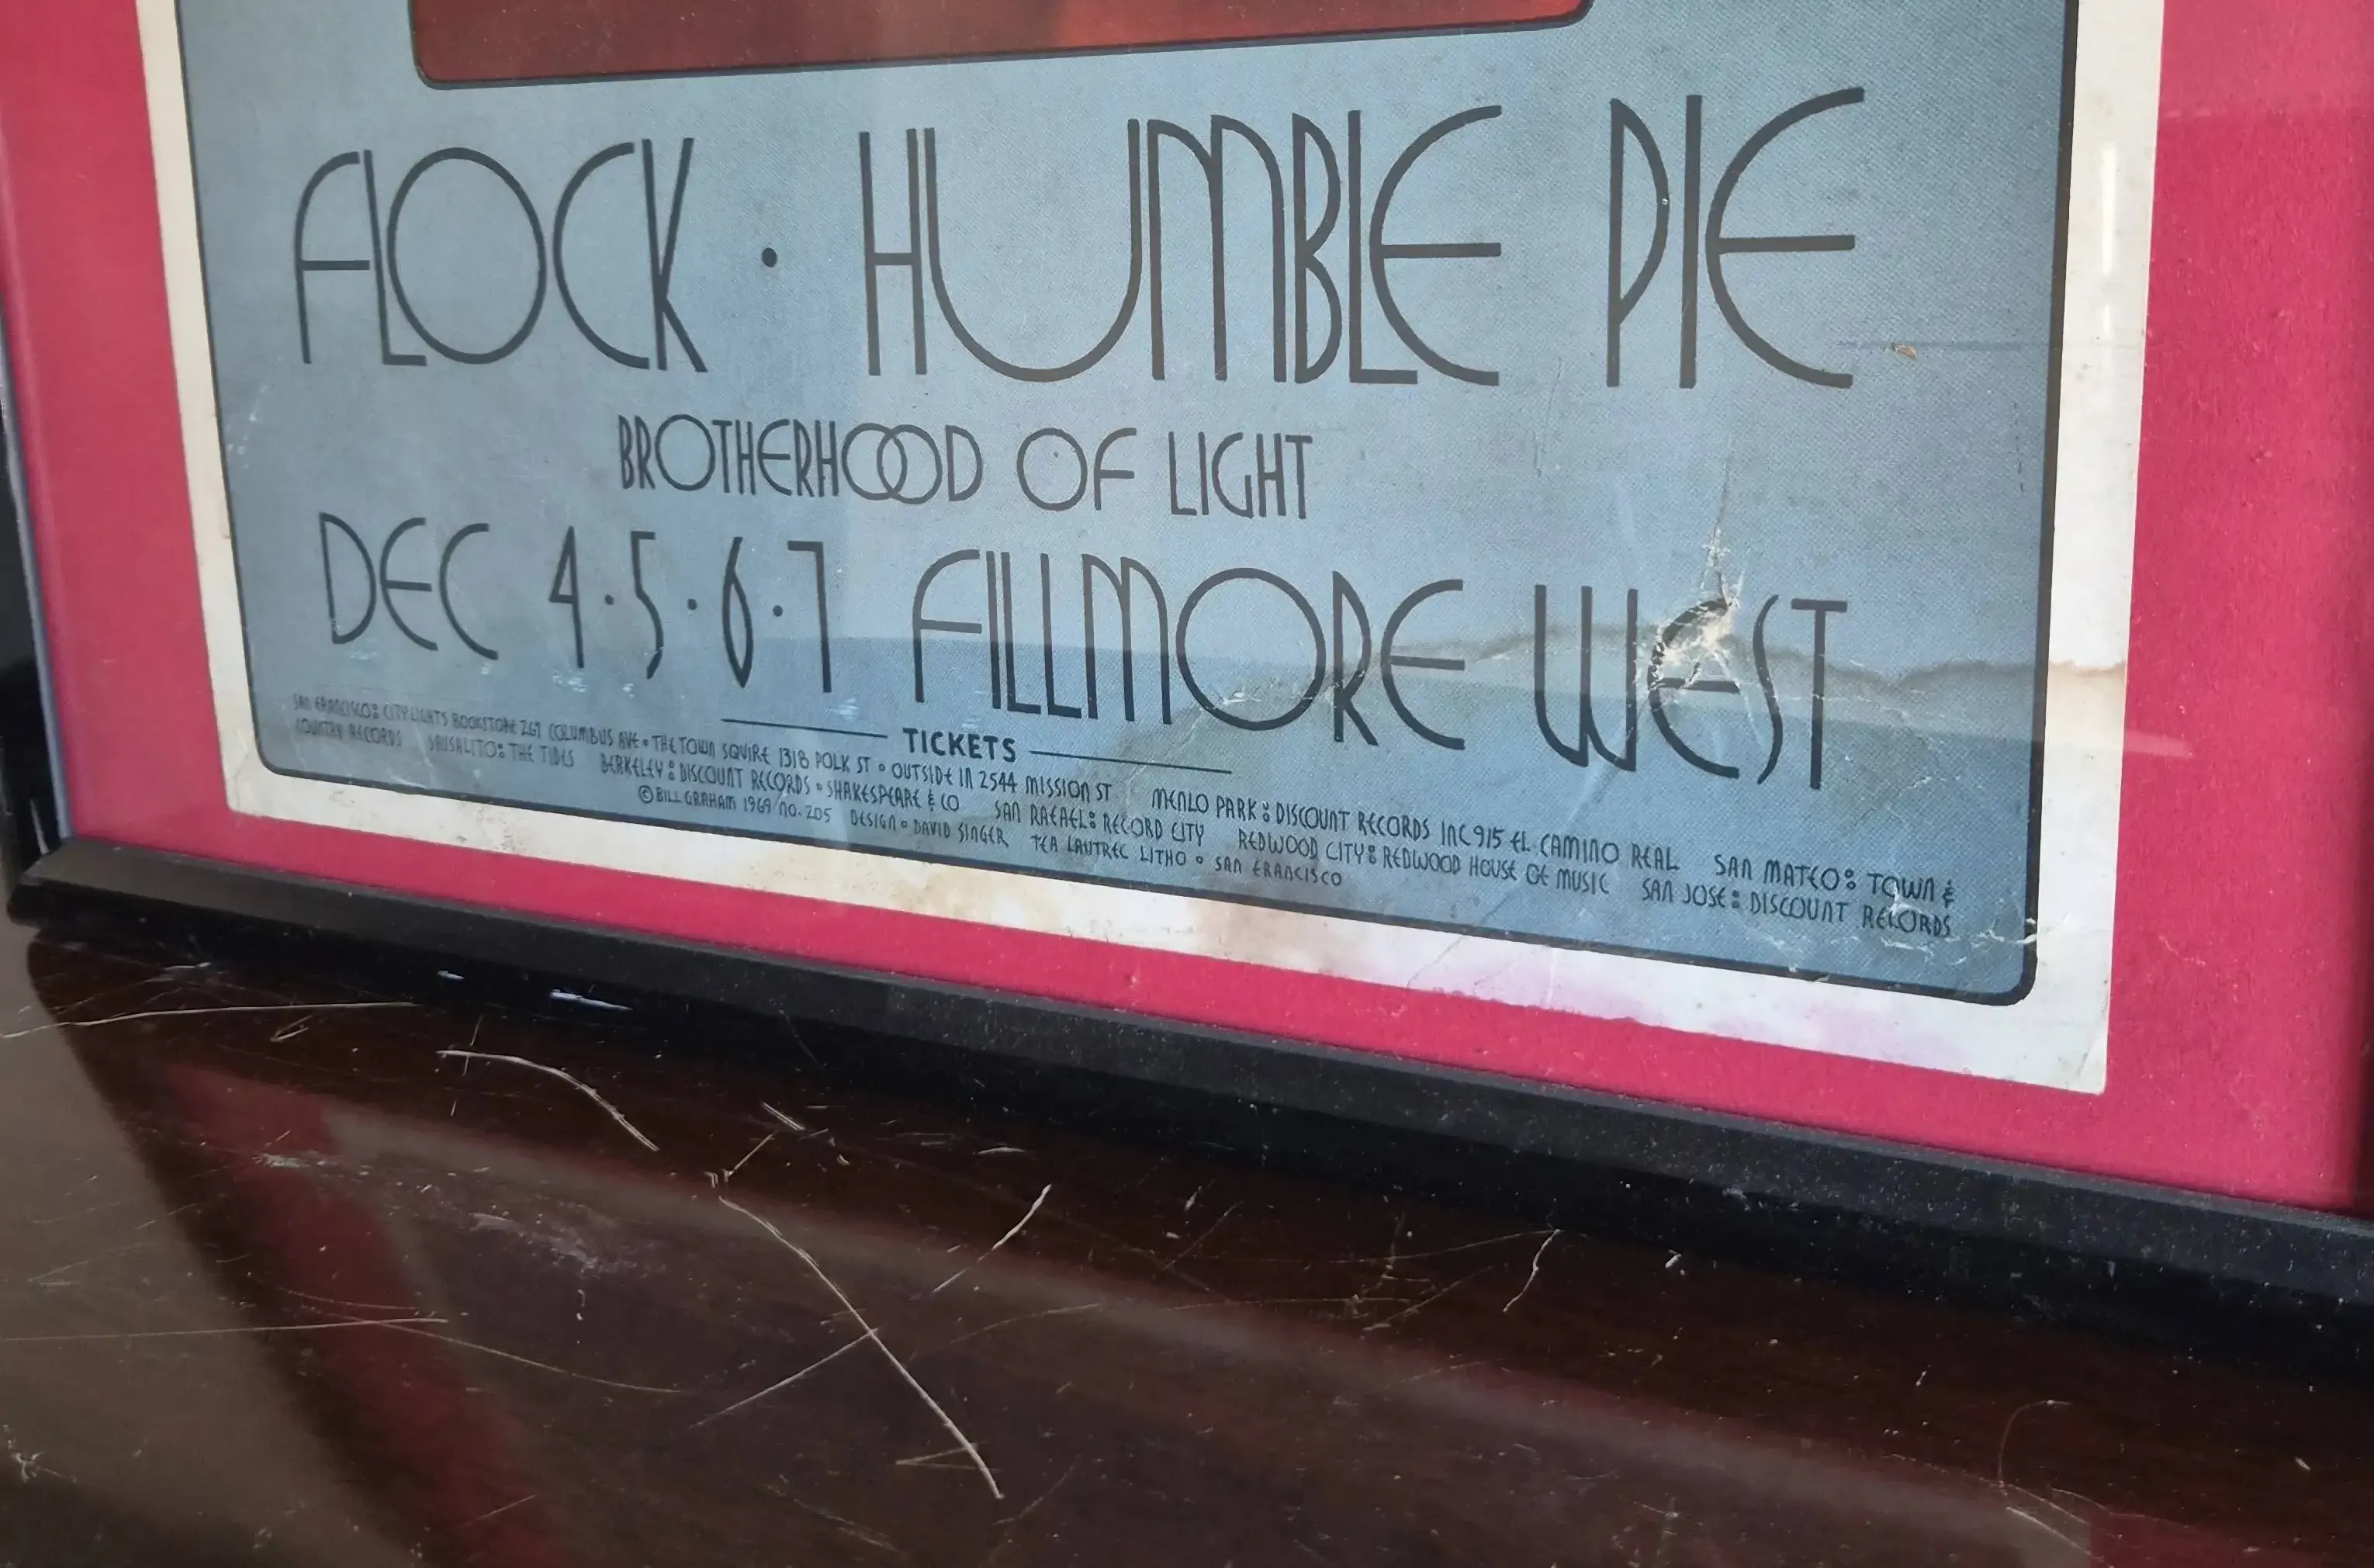 FLOCK · HUMBLE PIE
BROTHERHOOD OF LIGHT
DEC 4·5·6·7 FILLMORE WEST
TICKETS
SAN FRANCISCO: CITY LIGHTS BOOKSTORE 261 COLUMBUS AVE • THE TOWN SQUIRE 1318 POLK ST • OUTSIDE IN 2544 MISSION ST MENLO PARK: DISCOUNT RECORDS INC 915 EL CAMINO REAL SAN MATEO: TOWN &
COUNTRY RECORDS SAUSALITO: THE TIDES BERKELEY: DISCOUNT RECORDS • SHAKESPEARE & CO SAN RAFAEL: RECORD CITY REDWOOD CITY: REDWOOD HOUSE OF MUSIC SAN JOSE: DISCOUNT RECORDS
© BILL GRAHAM 1969 NO. 205 DESIGN • DAVID SINGER TEA LAUTREC LITHO • SAN FRANCISCO